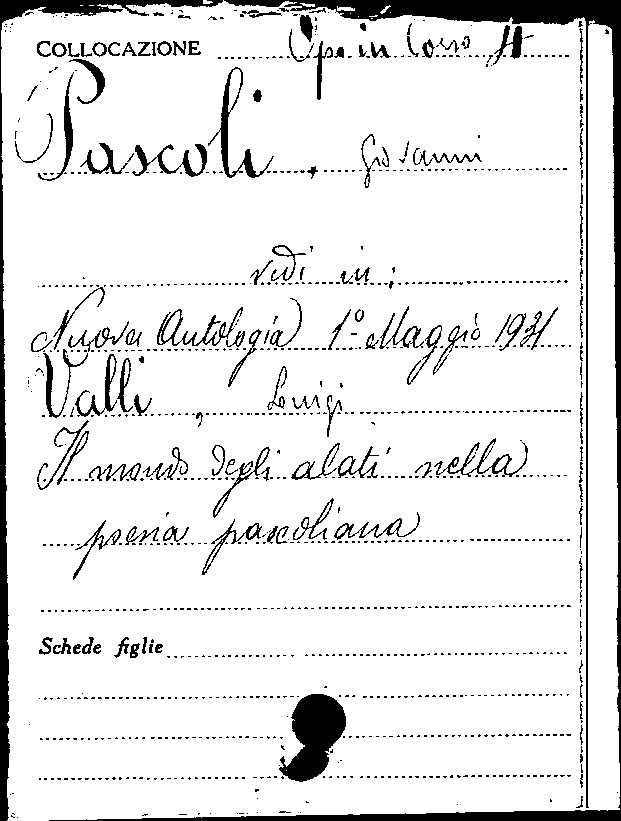 COLLOCAZIONE Ope in Corso
Pascoli, Giovanni
vedi in:
Nuova Antologia 1º Maggio 1931
Valli, Luigi
Il mondo degli alati nella
poesia pascoliana
Schede figlie